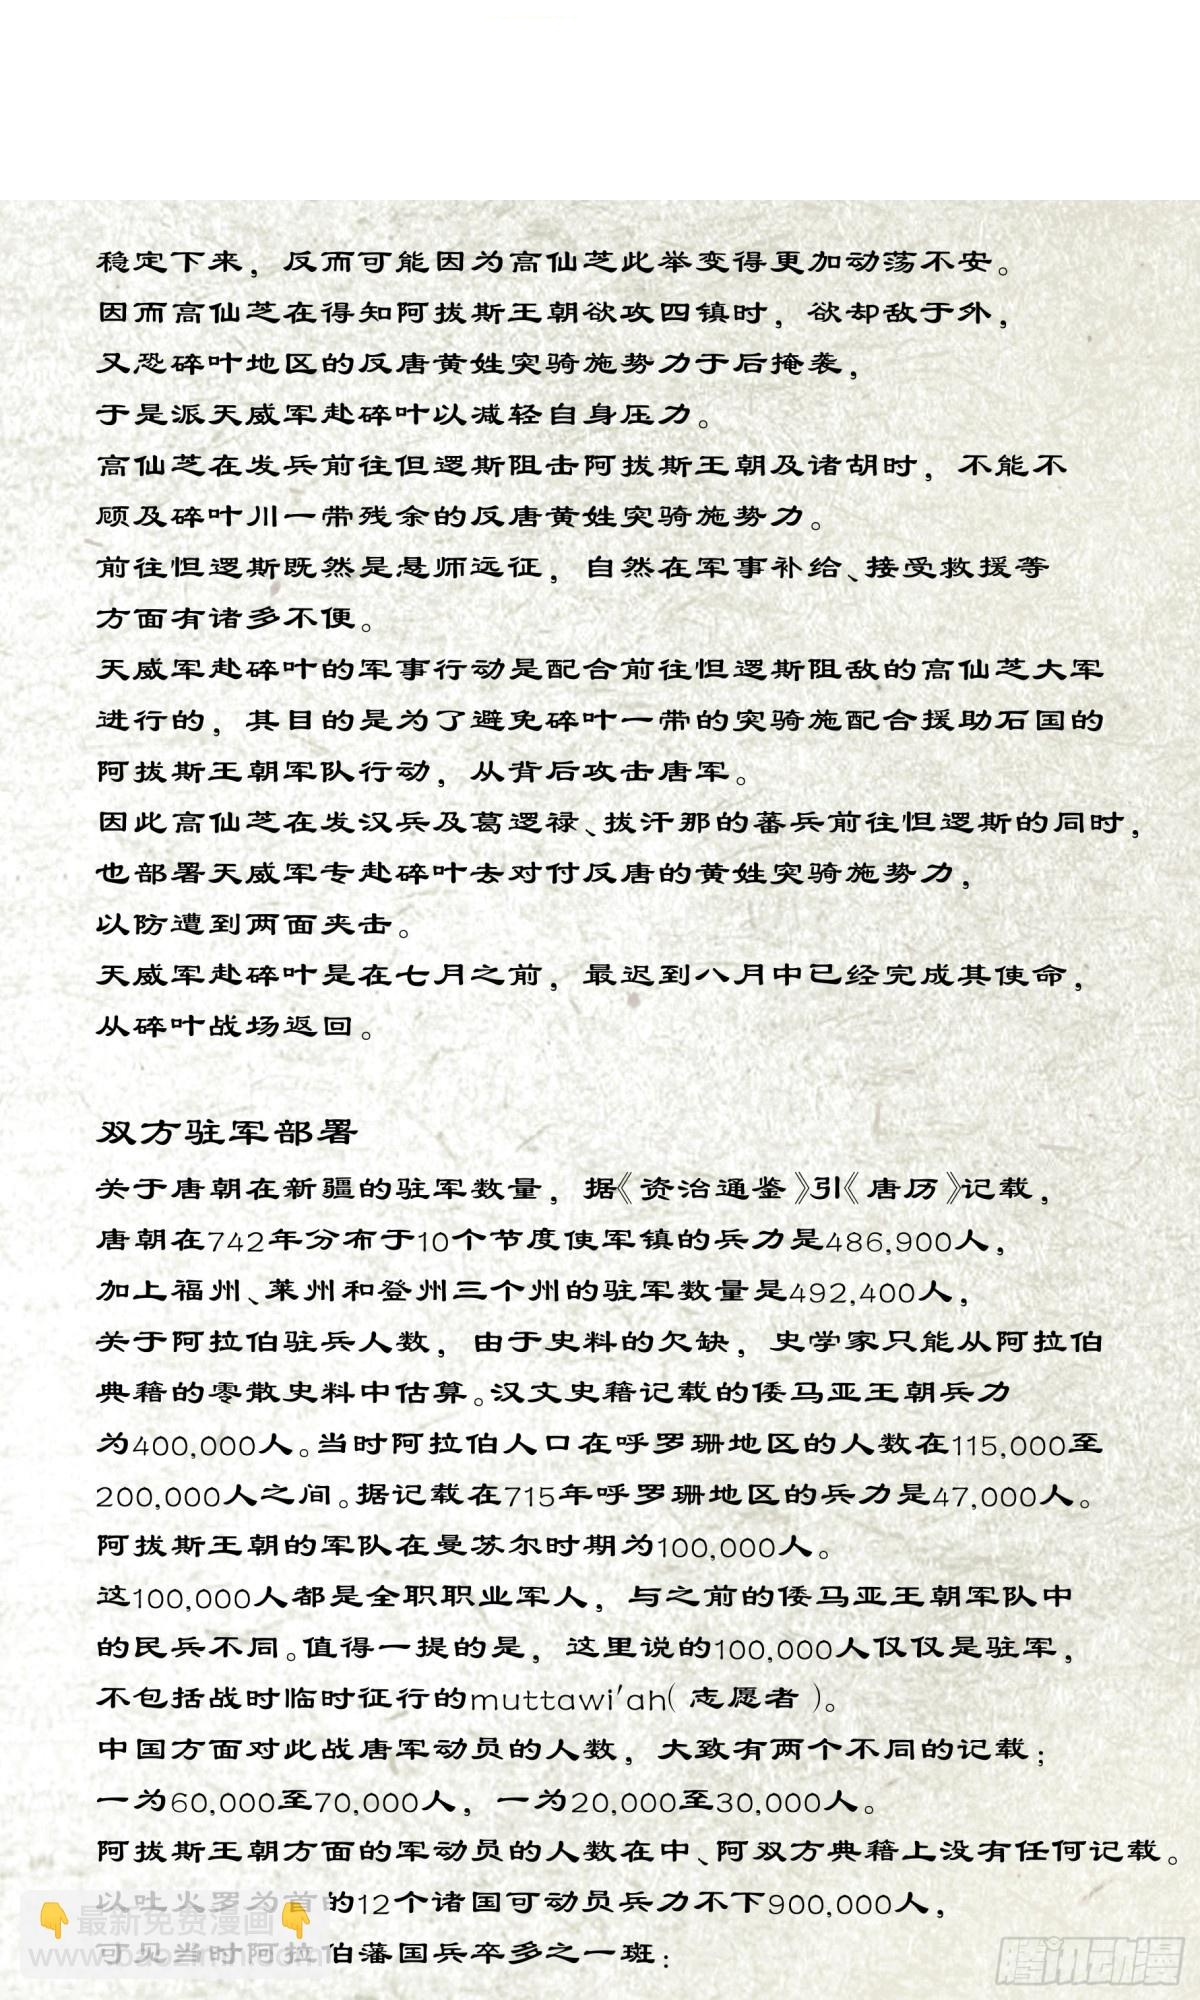 稳定下来，反而可能因为高仙芝此举变得更加动荡不安。
因而高仙芝在得知阿拔斯王朝欲攻四镇时，欲却敌于外，
又恐碎叶地区的反唐黄姓突骑施势力于后掩袭，
于是派天威军赴碎叶以减轻自身压力。
高仙芝在发兵前往怛逻斯阻击阿拔斯王朝及诸胡时，不能不
顾及碎叶川一带残余的反唐黄姓突骑施势力。
前往怛逻斯既然是悬师远征，自然在军事补给、接受救援等
方面有诸多不便。
天威军赴碎叶的军事行动是配合前往怛逻斯阻敌的高仙芝大军
进行的，其目的是为了避免碎叶一带的突骑施配合援助石国的
阿拔斯王朝军队行动，从背后攻击唐军。
因此高仙芝在发汉兵及葛逻禄、拔汗那的蕃兵前往怛逻斯的同时，
也部署天威军专赴碎叶去对付反唐的黄姓突骑施势力，
以防遭到两面夹击。
天威军赴碎叶是在七月之前，最迟到八月中已经完成其使命，
从碎叶战场返回。
双方驻军部署
关于唐朝在新疆的驻军数量，据《资治通鉴》引《唐历》记载，
唐朝在742年分布于10个节度使军镇的兵力是486,900人，
加上福州、莱州和登州三个州的驻军数量是492,400人，
关于阿拉伯驻兵人数，由于史料的欠缺，史学家只能从阿拉伯
典籍的零散史料中估算。汉文史籍记载的倭马亚王朝兵力
为400,000人。当时阿拉伯人口在呼罗珊地区的人数在115,000至
200,000人之间。据记载在715年呼罗珊地区的兵力是47,000人。
阿拔斯王朝的军队在曼苏尔时期为100,000人。
这100,000人都是全职职业军人，与之前的倭马亚王朝军队中
的民兵不同。值得一提的是，这里说的100,000人仅仅是驻军，
不包括战时临时征行的muttawi'ah（志愿者）。
中国方面对此战唐军动员的人数，大致有两个不同的记载；
一为60,000至70,000人，一为20,000至30,000人。
阿拔斯王朝方面的军动员的人数在中、阿双方典籍上没有任何记载。
以吐火罗为首的12个诸国可动员兵力不下900,000人，
可见当时阿拉伯藩国兵卒多之一斑：
👇最新免费漫画👇
www.baozimh.com
腾讯动漫